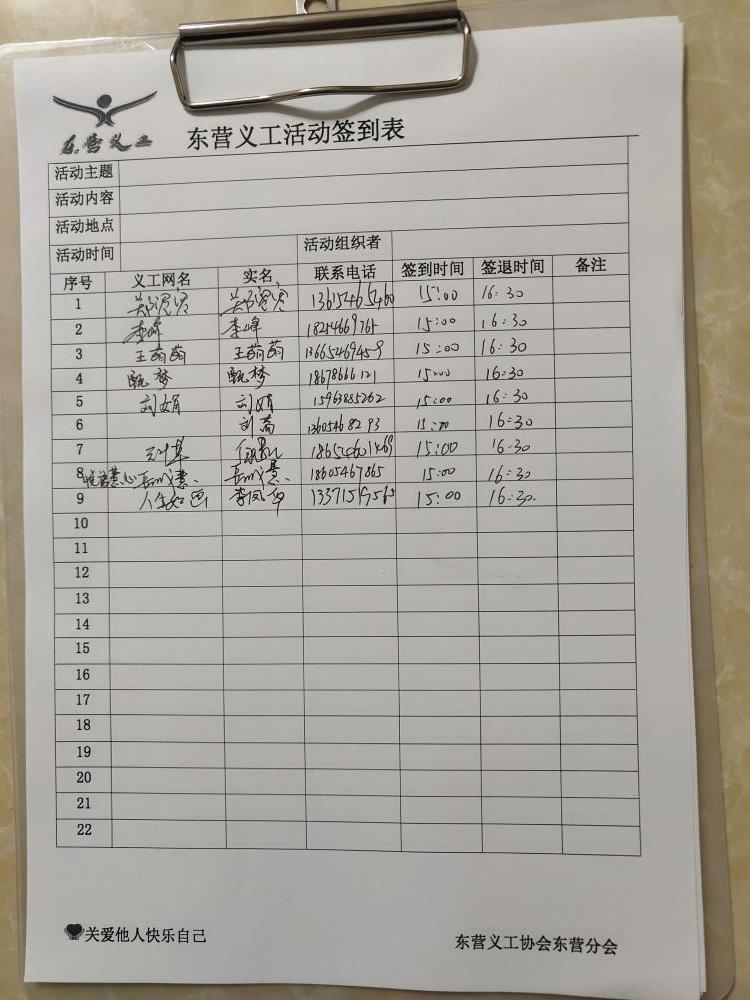 东营义工
东营义工活动签到表
活动主题
活动内容
活动地点
活动时间 活动组织者
序号 义工网名 实名 联系电话 签到时间 签退时间 备注
1 15:00 16:30
2 李峰 李峰 18254669765 15:00 16:30
3 王萌萌 王萌萌 13665469459 15:00 16:30
4 甄梦 甄梦 18678666121 15:00 16:30
5 刘娟 刘娟 15963885262 15:00 16:30
6 刘 13605468293 15:00 16:30
7 18654601469 15:00 16:30
8 18605467865 15:00 16:30
9 人生如 李凤 15:00 16:30.
10
11
12
13
14
15
16
17
18
19
20
21
22
关爱他人快乐自己
东营义工协会东营分会